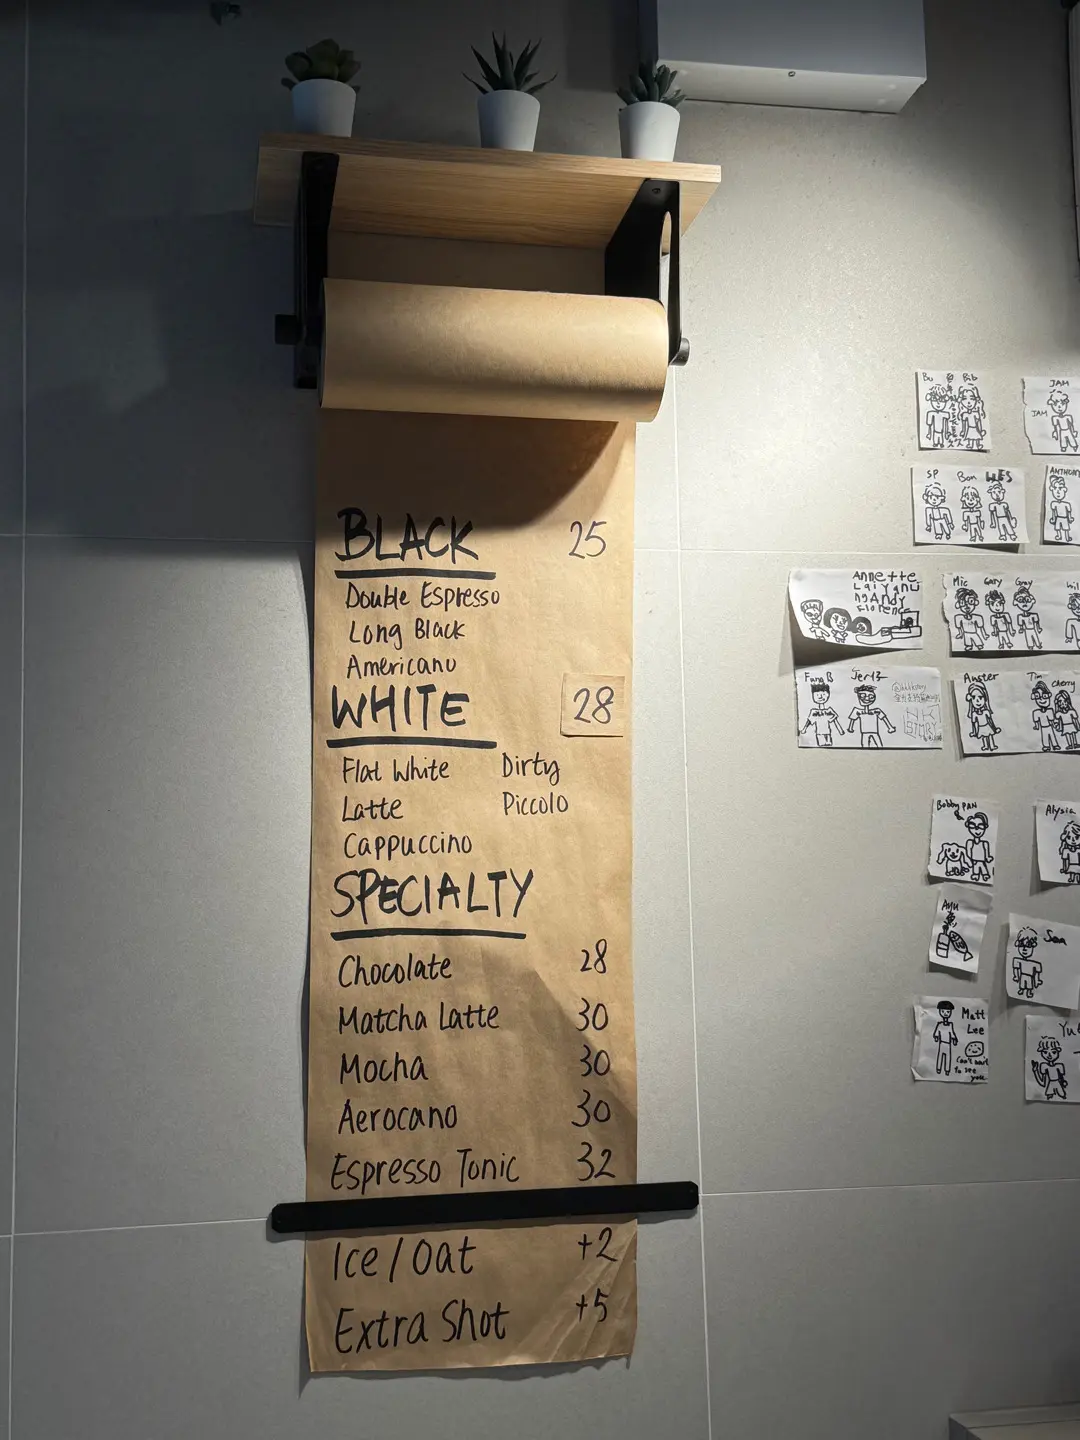 BLACK 25
Double Espresso
Long Black
Americano
WHITE 28
Flat White Dirty
Latte Piccolo
Cappuccino
SPECIALTY
Chocolate 28
Matcha Latte 30
Mocha 30
Aerocano 30
Espresso Tonic 32
Ice/Oat +2
Extra Shot +5
Bu Bib
JAM
JAM
SP Bom WES
Annette
Mic Gary Gray
Fang B Jer
Auster Tim Cherry
Bobby PAN
Alysia
Sea
Matt
Lee
Can't wait
to see
you